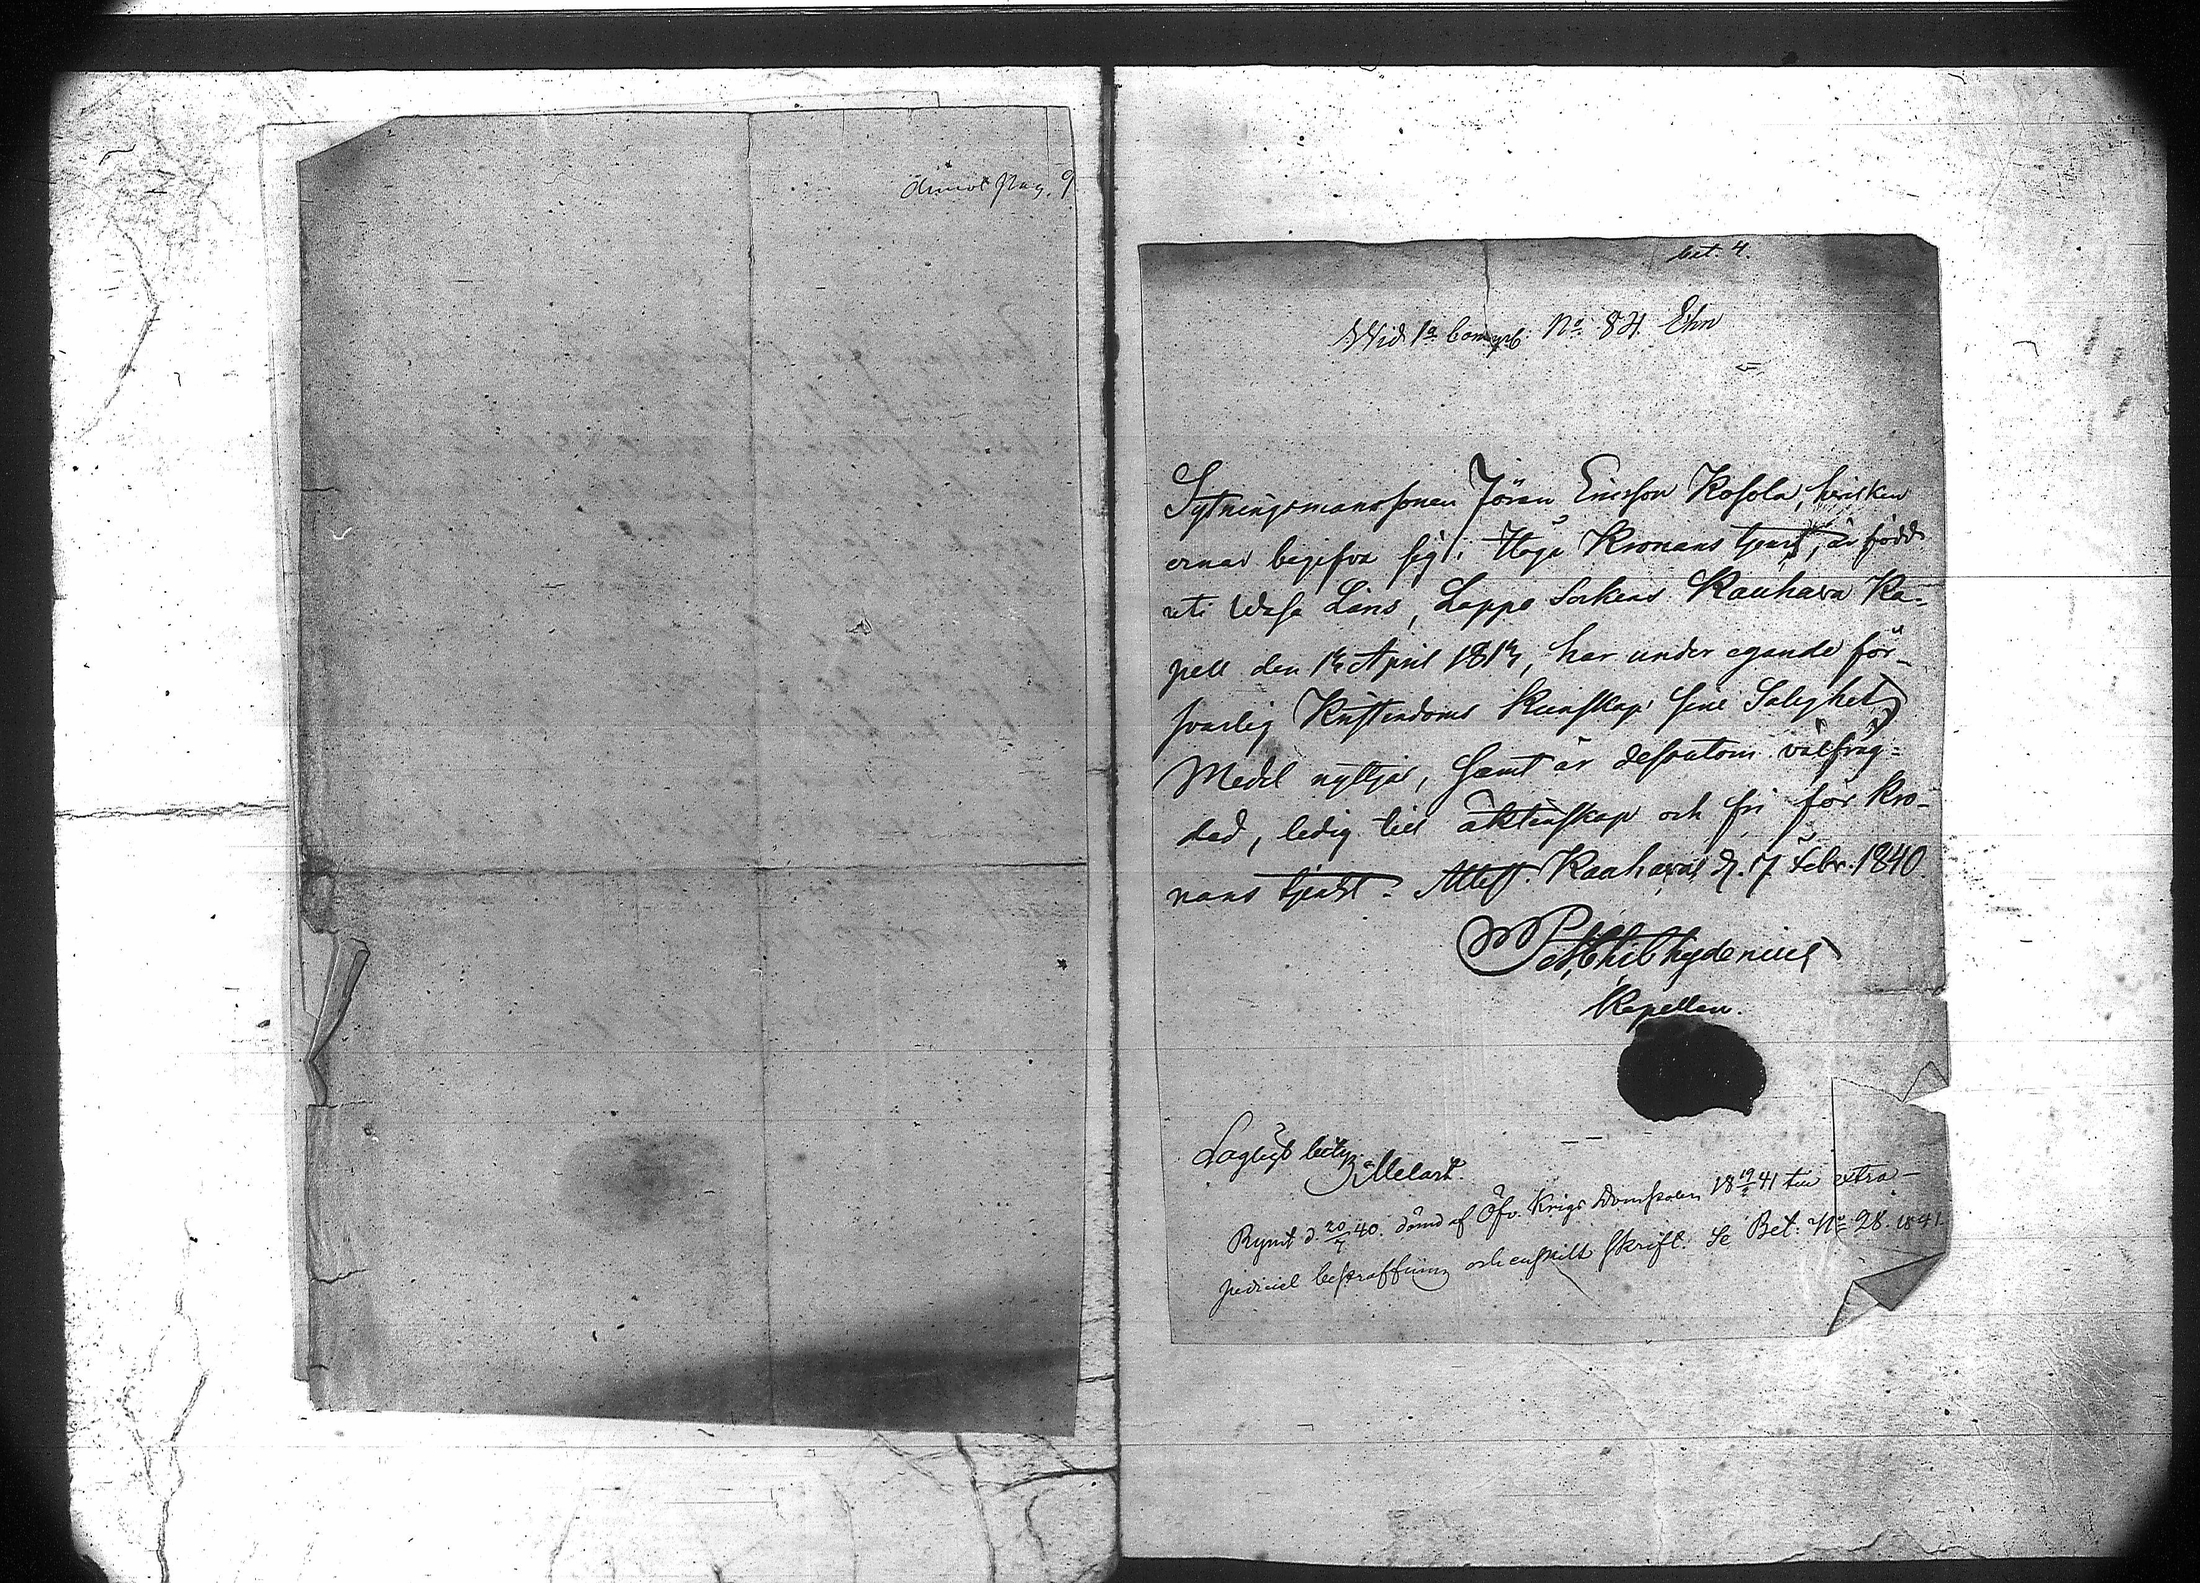 emot Pag. 9
bet. 4.
Wid 1a Comp: No 84. Ehn
Sytningsmanssonen Jöran Ericsson Kosola, hvilken
ernar begifva sig i Höga Kronans tjenst, är född
uti Wasa Läns, Lappo Sockens Kauhava Ka-
pell den April 1817, har under egande för-
svarlig Kristendoms Kunskap sine Salighets
Medel nyttjat, samt är dessutom välfräg-
dad, ledig till äktenskap och fri för Kro-
nans tjenst. Attest. Kauhava d. 7 Febr. 1840.
Hydenius
Kapellan.
Lagligt betyg.
Melart.
Rymt d. 20/7 40. dömd af Öfv. Krigs Domstolen 18 19/2 41 till extra-
judiciel bestraffning och enskilt skrift. Se Bet: No 28. 1841.